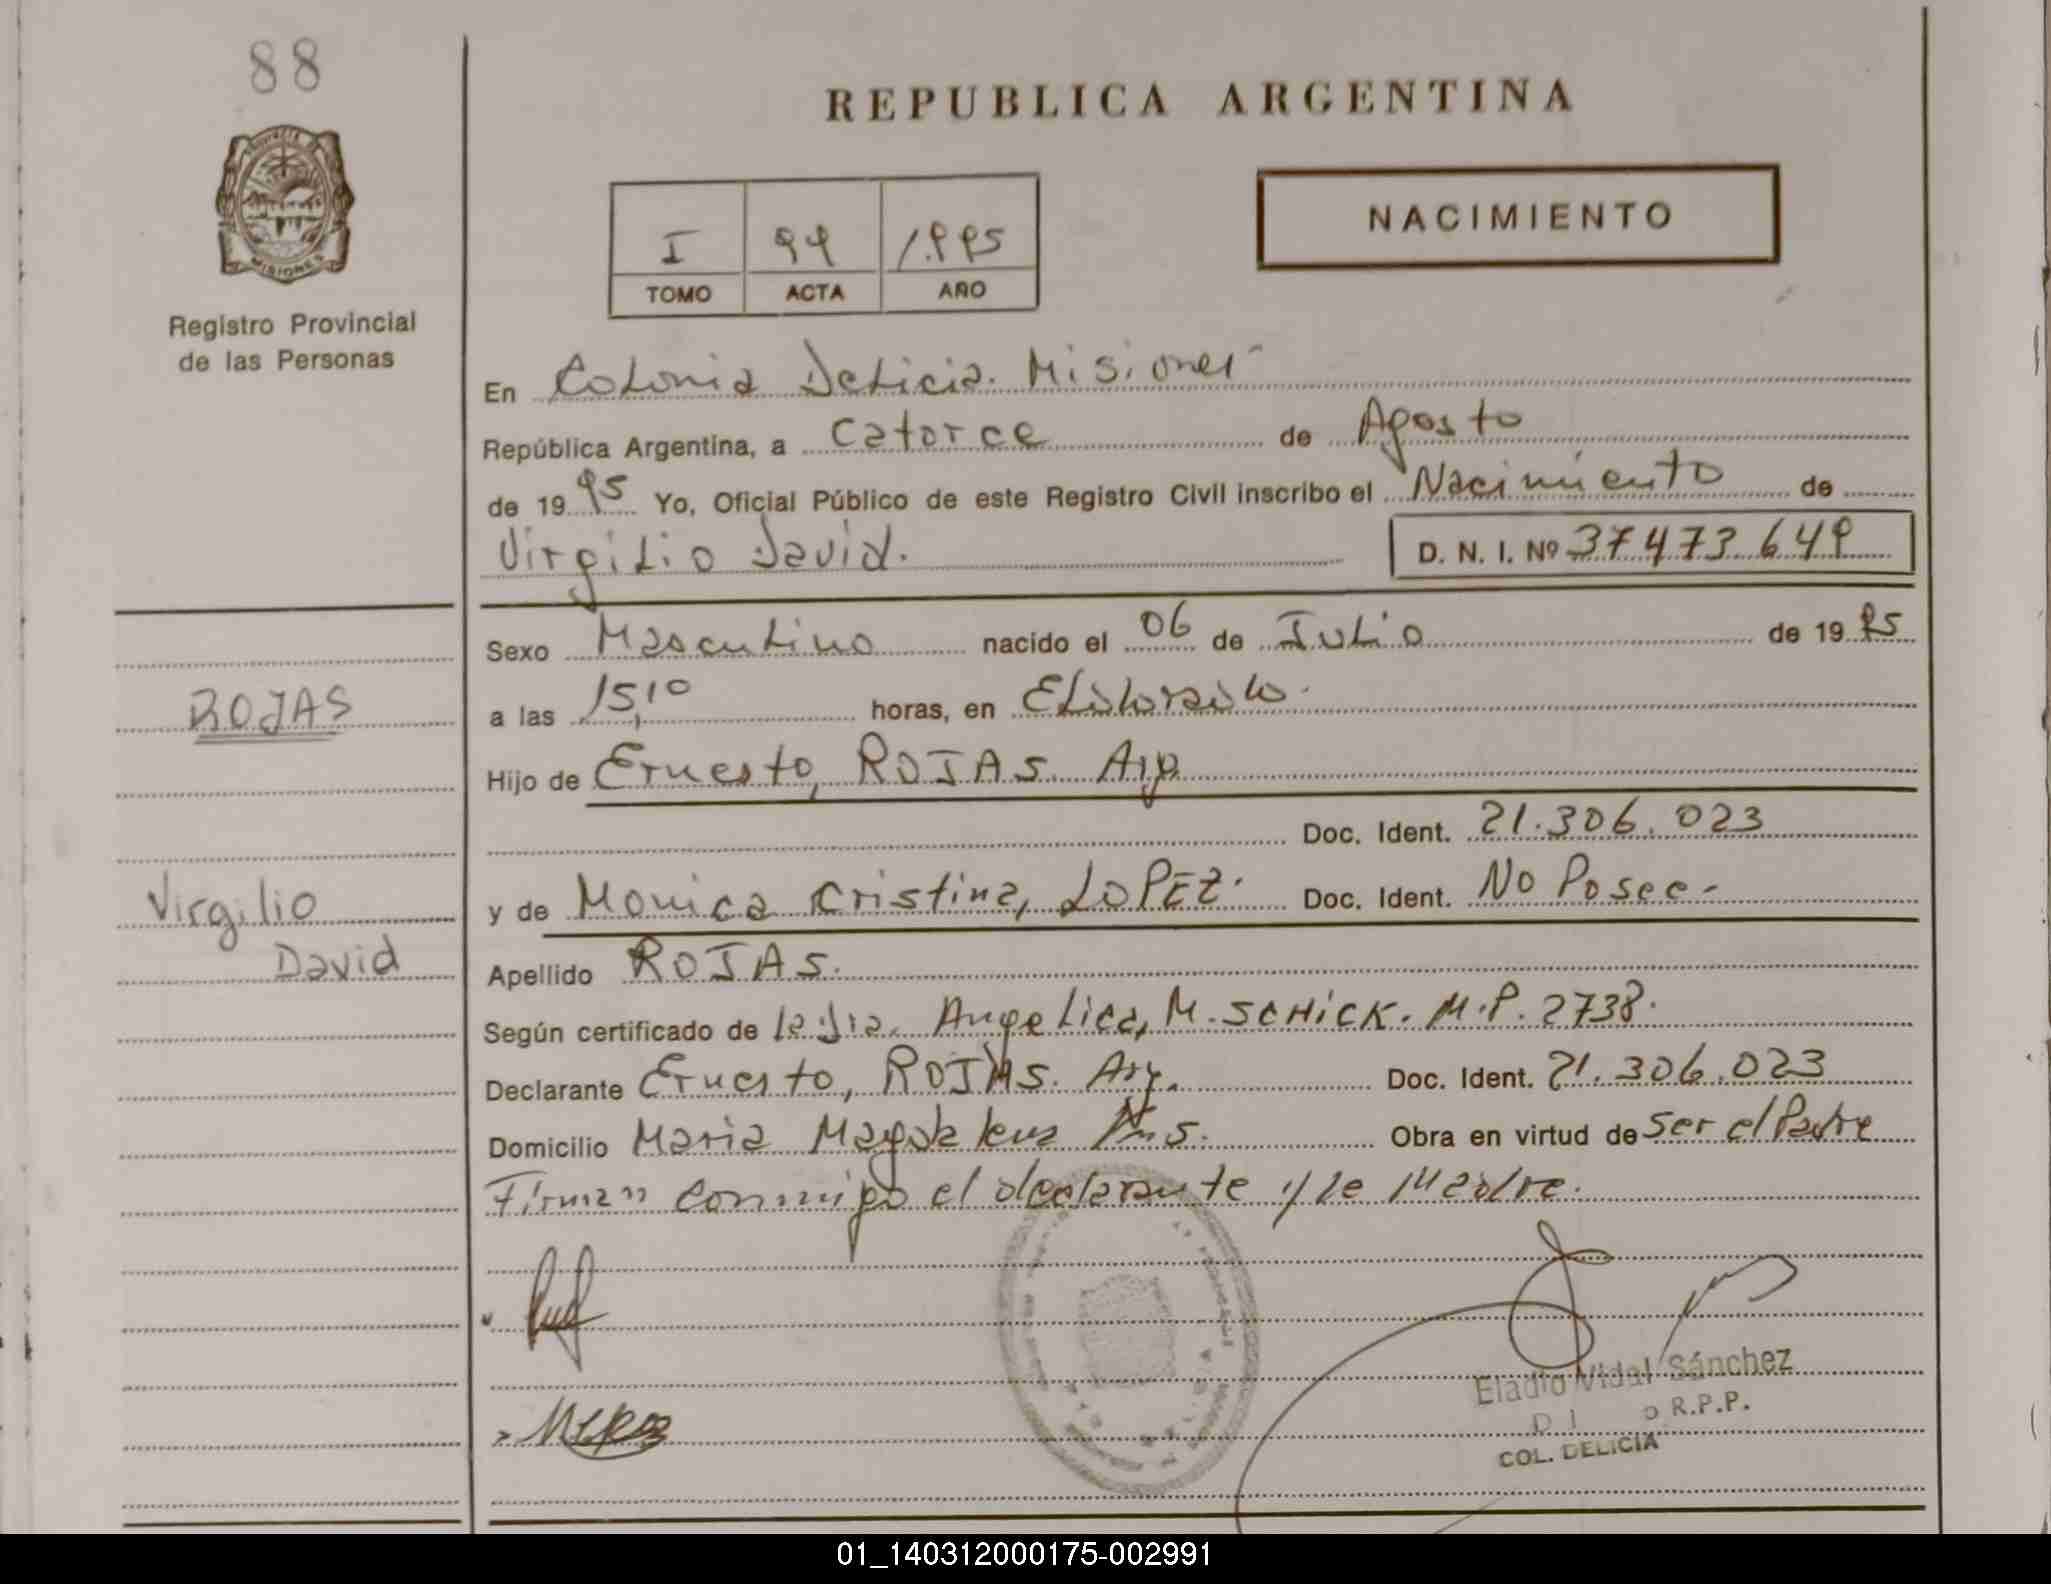 88
REPUBLICA ARGENTINA
PROVINCIA DE
MISIONES
Registro Provincial
de las Personas
I 99 1.995
TOMO ACTA AÑO
NACIMIENTO
En Colonia Delicia. Misiones
República Argentina, a Catorce de Agosto
de 19 95 Yo, Oficial Público de este Registro Civil inscribo el Nacimiento de
Virgilio David. D. N. I. Nº 37473649
Sexo Masculino nacido el 06 de Julio de 19 95
ROJAS
a las 15,10 horas, en Eldorado.
Hijo de Ernesto, ROJAS. Arg.
Doc. Ident. 21.306.023
Virgilio
y de Monica Cristina, LOPEZ. Doc. Ident. No Posee-
David
Apellido ROJAS.
Según certificado de la Dra. Angelica, M. SCHICK. M.P. 2738.
Declarante Ernesto, ROJAS. Arg. Doc. Ident. 21.306.023
Domicilio Maria Magdalena Mns. Obra en virtud de Ser el Padre
Firman conmigo el declarante y la Madre.
Eladio Vidal Sánchez
R.P.P.
COL. DELICIA
01_140312000175-002991